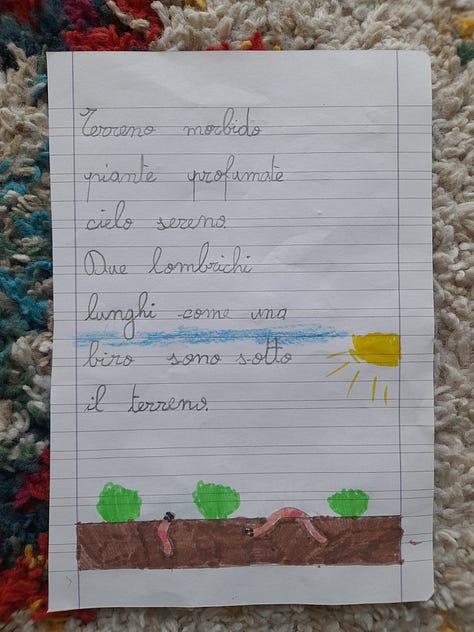 Terreno morbido
piante profumate
cielo sereno.
Due lombrichi
lunghi come una
biro sono sotto
il terreno.